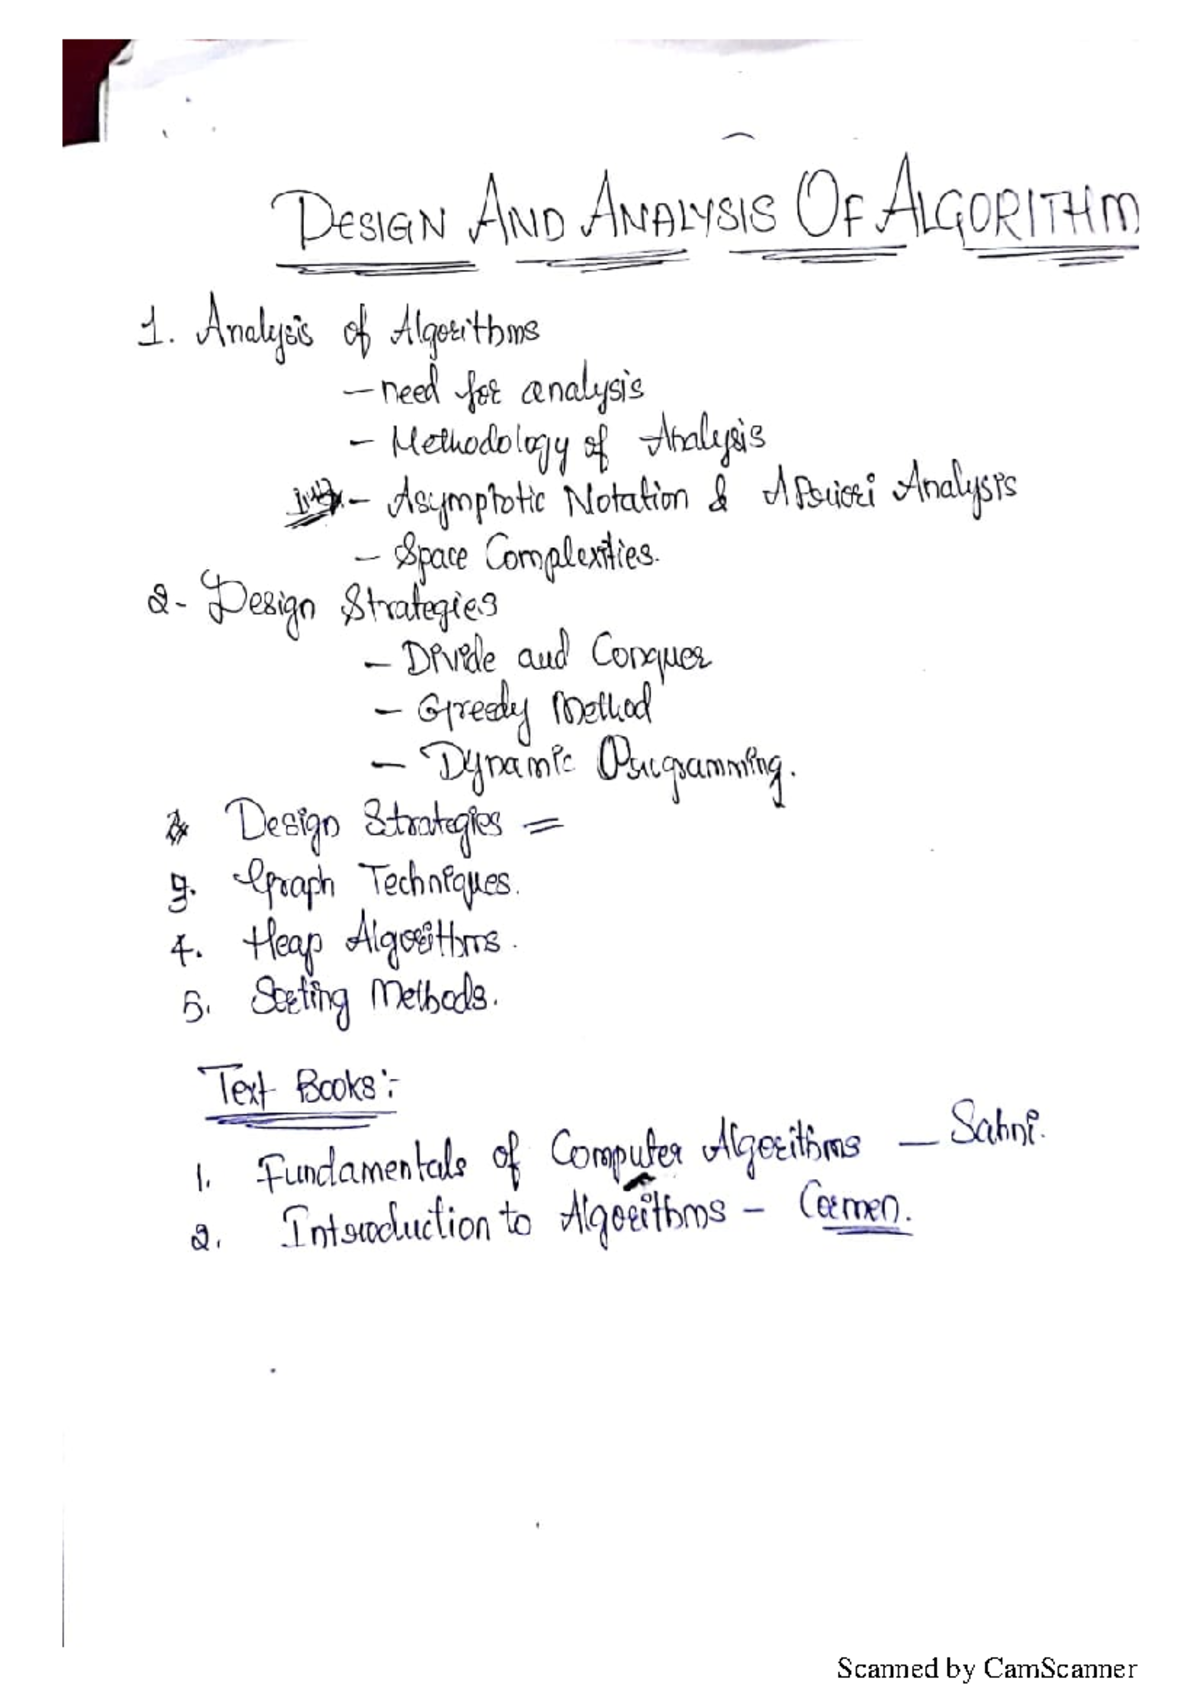 DESIGN AND ANALYSIS OF ALGORITHM
1. Analysis of Algorithms
- need for analysis
- Methodology of Analysis
- Asymptotic Notation & Apriori Analysis
- Space Complexities.
2- Design Strategies
- Divide and Conquer
- Greedy Method
- Dynamic Programming.
Design Strategies =
3. Graph Techniques.
4. Heap Algorithms.
5. Sorting Methods.
Text Books:-
1. Fundamentals of Computer Algorithms - Sahni.
2. Introduction to Algorithms - Cormen.
Scanned by CamScanner